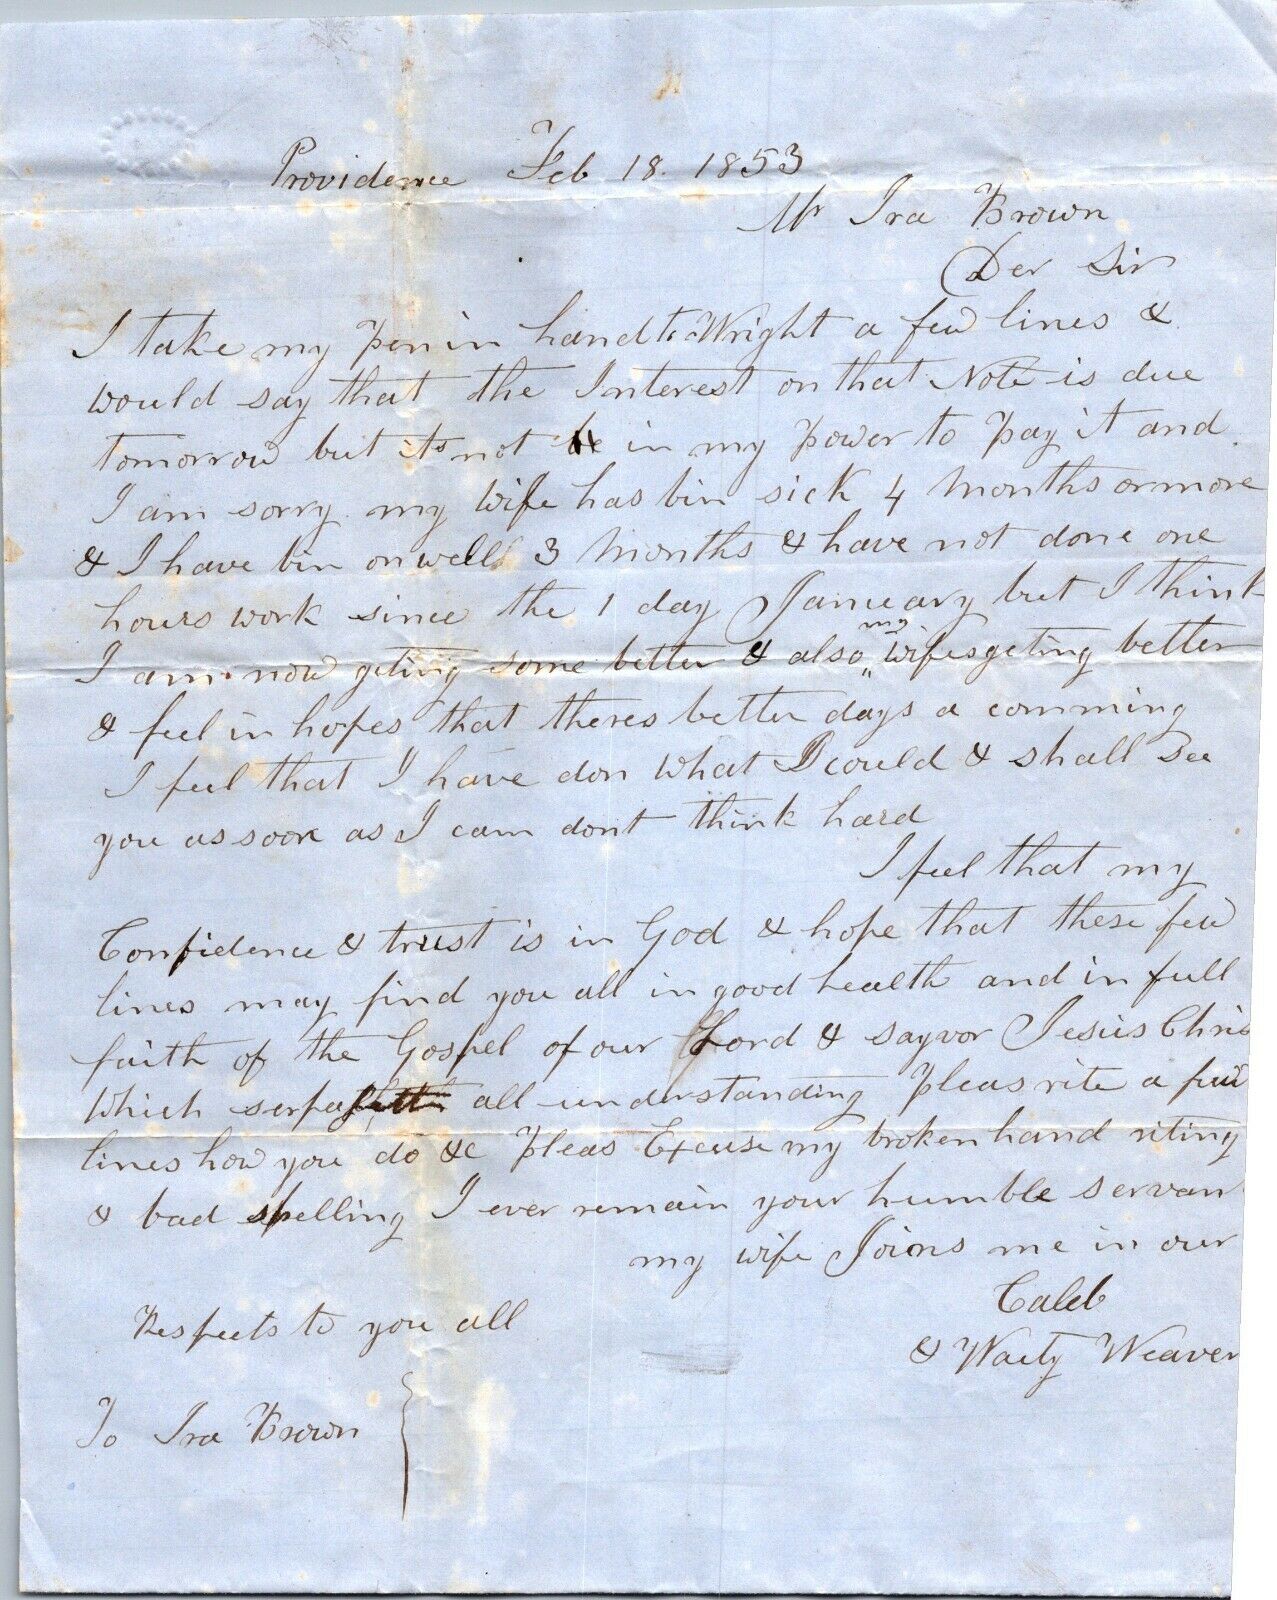 Providence Feb 18. 1853
Mr Ira Brown
Der Sir
I take my pen in hand to Wright a few lines &
would say that the Interest on that Note is due
tomorrow but its not in my power to pay it and
I am sorry my wife has bin sick 4 months or more
& I have bin onwell 3 months & have not done one
hours work since the 1 day Janueary but I think
I am now geting some better & also my wifes geting better
& feel in hopes that theres better days a comming
I feel that I have don what I could & shall see
you as soon as I can dont think hard
I feel that my
Confidence & trust is in God & hope that these few
lines may find you all in good health and in full
faith of the Gospel of our Lord & sayvor Jesus Chris
Which serpa all understanding Pleas rite a few
lines how you do &c Pleas Excuse my broken hand riting
& bad spelling I ever remain your humble servan
my wife Joins me in our
Caleb
Respects to you all
& Waity Weaver
To Ira Brown